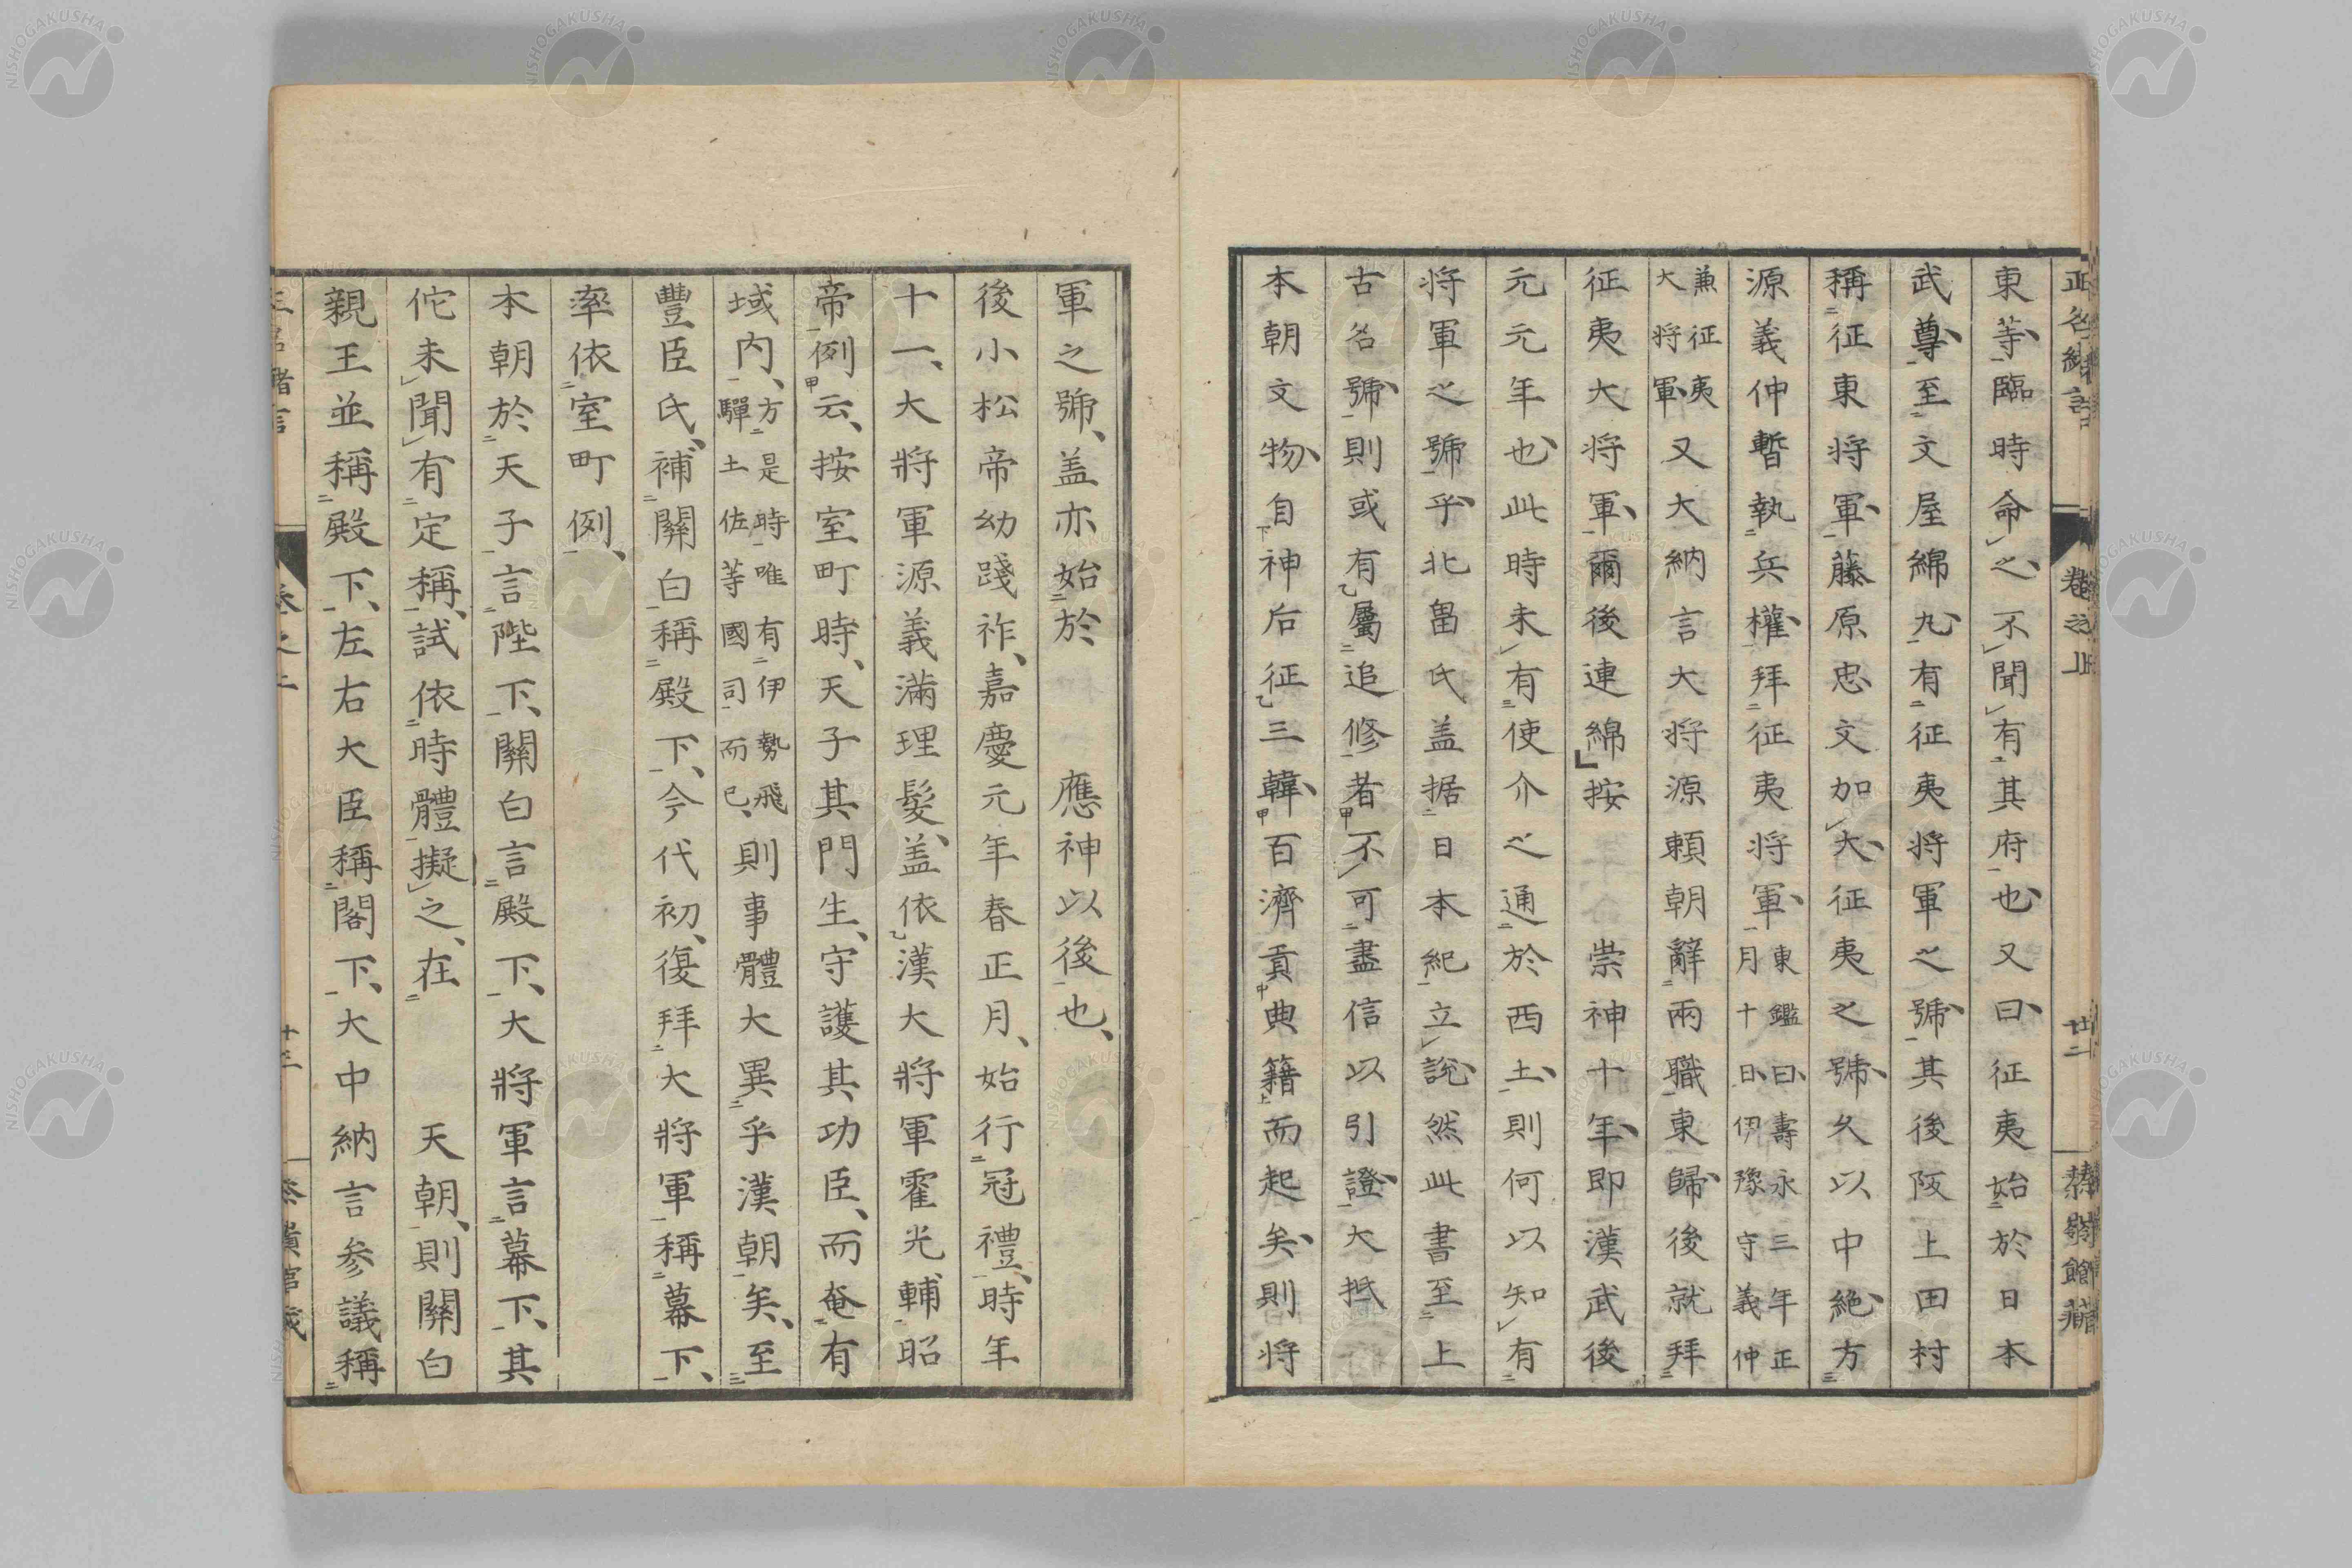 正名緒言 卷之上 廿二
東等臨時命之不聞有其府也又曰征夷始於日本
武尊至文屋綿丸有征夷将軍之號其後阪上田村
稱征東将軍藤原忠文加大征夷之號久以中絶方
源義仲暫執兵權拜征夷将軍東鑑曰壽永三年正月十日伊豫守義仲
兼征夷大将軍又大納言大将源頼朝辭兩職東歸後就拜
征夷大将軍爾後連綿按 崇神十年即漢武後
元元年也此時未有使介之通於西土則何以知有
将軍之號乎北畠氏盖据日本紀立說然此書至上
古名號則或有屬追修者不可盡信以引證大抵
本朝文物自神后征三韓百濟貢典籍而起矣則将
軍之號盖亦始於 應神以後也
後小松帝幼踐祚嘉慶元年春正月始行冠禮時年
十一大將軍源義滿理髮盖依漢大將軍霍光輔昭
帝例云按室町時天子其門生守護其功臣而奄有
域内方是時唯有伊勢飛驒土佐等國司而已則事體大異乎漢朝矣至
豐臣氏補關白稱殿下今代初復拜大將軍稱幕下
率依室町例
本朝於天子言陛下關白言殿下大將軍言幕下其
佗未聞有定稱試依時體擬之在 天朝則關白
親王並稱殿下左右大臣稱閣下大中納言參議稱